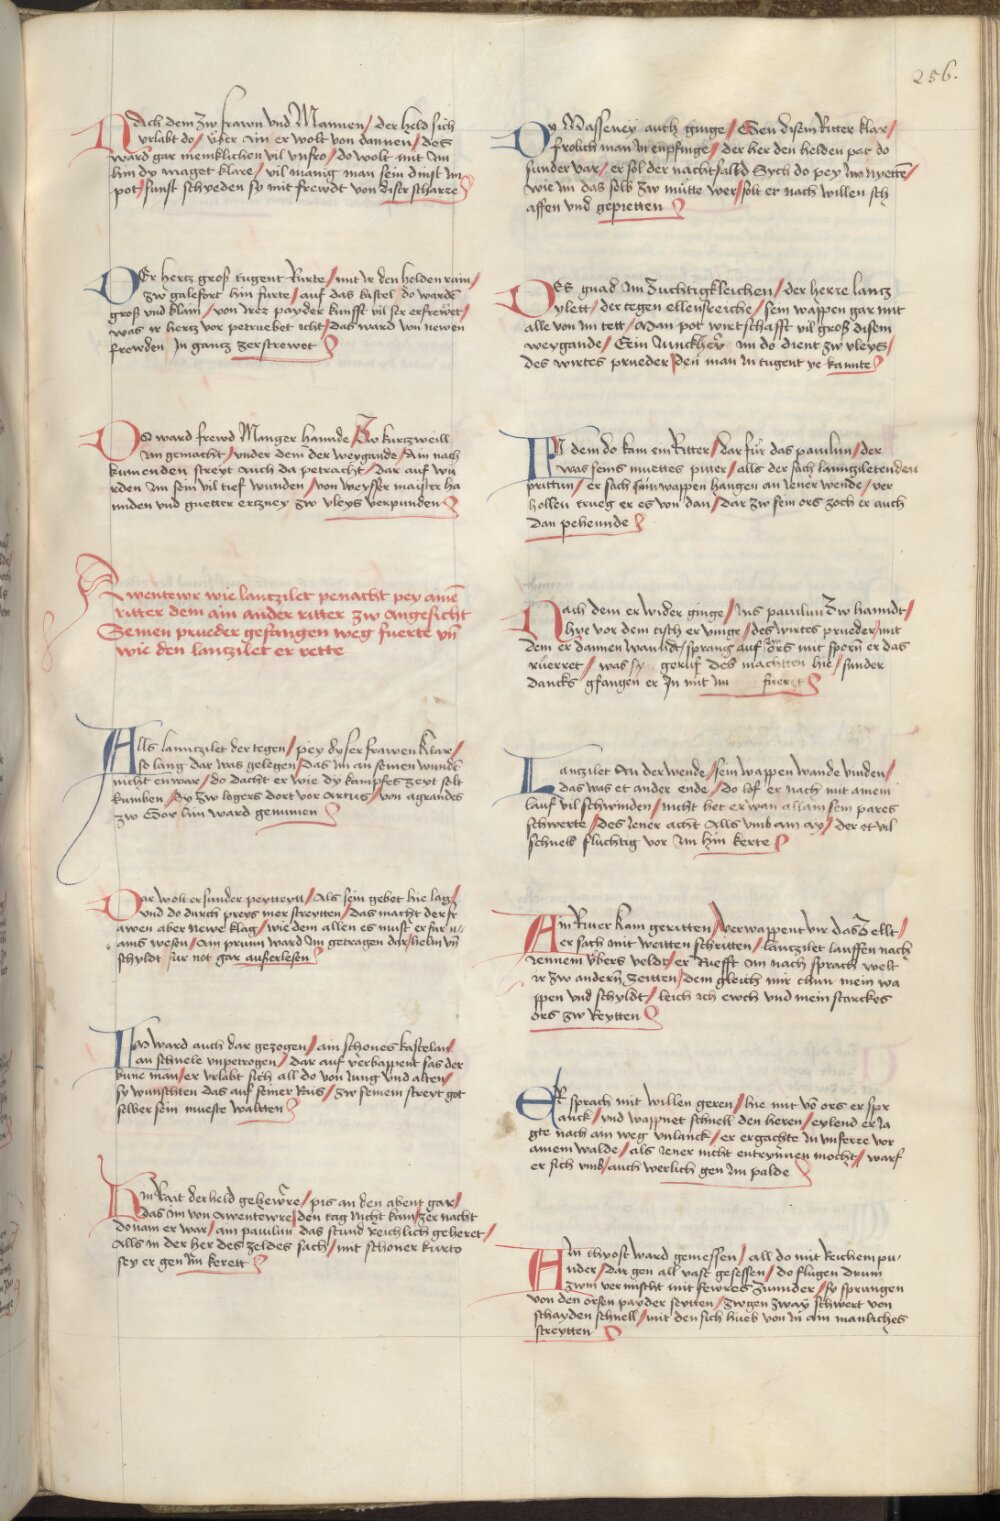 256.
Nach dem zw frawn vnd Mannen / der held sich
vrlabt do / vber ain er wolt von dannen / des
ward gar meinklichen vil vnfro / do wolt mit im
hin dy maget klare / vil manig man sein dinst im
pot / sunst schyeden sy mit frewdt von diser scharee
Der hertz groß tugent Rurte / mit ir den helden rain /
zw galefort hin furte / auf das kastel do warde
groß vnd klain / von irer payder kunfft vil ser erfrewet /
was ir hertz vor petruebet icht / das ward von newen
frewden In gantz zerstrewet
Do ward frewd Manger hannde / Zw kurtzweill
im gemacht / vnder dem der weygande / Ain nach
kumenden streyt auch da petracht / dar auf wu
rden im sein vil tief wunden / von weyser maister ha
nnden vnd guetter ertzney zw vleys verpunden
Awentewr wie lantzilet penacht pey aine
ritter dem ain ander ritter zw angesicht
Seinen prueder gefangen weg fuerte vn
wie den lantzilet er rette
Alls lanntzilet der tegen / pey dyser frawen klar /
so lang dar was gelegen / das im an seinen wunde
nicht enwar / do dacht er wie dy kampfes zeyt solt
kumben / dy zw logers dort vor Artus / von agrandes
zw Eor hin ward genumen
Dar wolt er sunder peytteytt / Als sein gebet hie lag /
vnd do durch preys mer streytten / das macht der fr
awen aber newe klag / wie dem allen es muest er fur n
ams wesen / Ain prunn ward im getragen dar / helm vn
schyldt fur not gar außerlesen
Im ward auch dar gezogen / ain schones kastelan /
an schnele vnpetrogen / dar auf verbappent sas der
kune man / er vrlabt sich all do von Jung vnd alten /
sy wunschten das auf seiner Rais / zw seinem streyt got
selber sein mueste waltten
Hin Rait der held gehewre / pis an den abent gar /
das im von Awentewre / den tag nicht kam / zer nacht
do nam er war / ain paulun das stund reichlich geheret /
Alls in der her des zeldes sach / mit schoner kurto
sey er gen im kerett
Dy Masseney auch ginge / Gein disem Ritter klar /
frolich man in enpfinge / der her den helden pat do
sunder var / er sol der nacht salld Sych do pey im nyette /
wie im das selb zw mutte wer / solt er nach willen sch
affen vnd gepietten
Des gnad im Zuchtigkleichen / der herre lantz
ylett / der tegen ellensreiche / sein wappen gar mit
alle von im tett / Man pot wirtschafft vil groß disem
weygande / Sein Junckher im do dient zw vleys /
des wirtes prueder / den man in tugent ye kannte
In dem do kam ein Ritter / dar fur das paulun / der
was seins muettes pitter / alls der sach lanntzileten den
prittun / er sach sein wappen hangen an Jener wende / ver
hollen trueg er es von dan / dar zw sein ors zoch er auch
dan pehennde
Nach dem er wider ginge / Ins paulun Zw hanndt /
hye vor dem tisch er vinge / des wirtes prueder mit
dem er dannen wanndt / sprang auf sein ors mit sporn er das
ruerret / was sy geruf des machtten hie / sunder
dancks gfangen er In mit im fueret
Lanzilet An der wende / sein wappen wande vinden /
das was et ander ende / do lof er nach mit ainem
lauf vil schwinden / nicht het er wan allain sein pares
schwerte / des Jener acht Alls vmb ain ay / der et vil
schnels fluchtig vor im hin kerte
Ain Ritter kam geritten / verwappent vir das Zellt /
er sach mit weitten schritten / lanntzilet lauffen nach
Jennem vbers veldt / er Ruefft im nach sprach welt
ir zw andern Zeitten / dem gleich mir thun mein wa
ppen vnd schyldt / leich ich ewch vnd mein starckes
ors zw Reytten
Er sprach mit willen geren / hie mit von ors er spr
anck / vnd wappnet schnell den heren / eylend er Ja
gte nach ain weg vnlanck / er ergachte in vnferee vor
ainem walde / als Jener nicht entrynnen mocht / warf
er sich vmb / auch werlich gen im palde
Ain thyost ward gemessen / all do mit Reichem pu
nder / dar gen all vast gesessen / do flugen drum
zwm vermischt mit fewres Zunnder / sy sprungen
von den orsen payder seytten / zwgen zway schwert von
schayden schnell / mit den sich hueb von in ain manliches
streytten